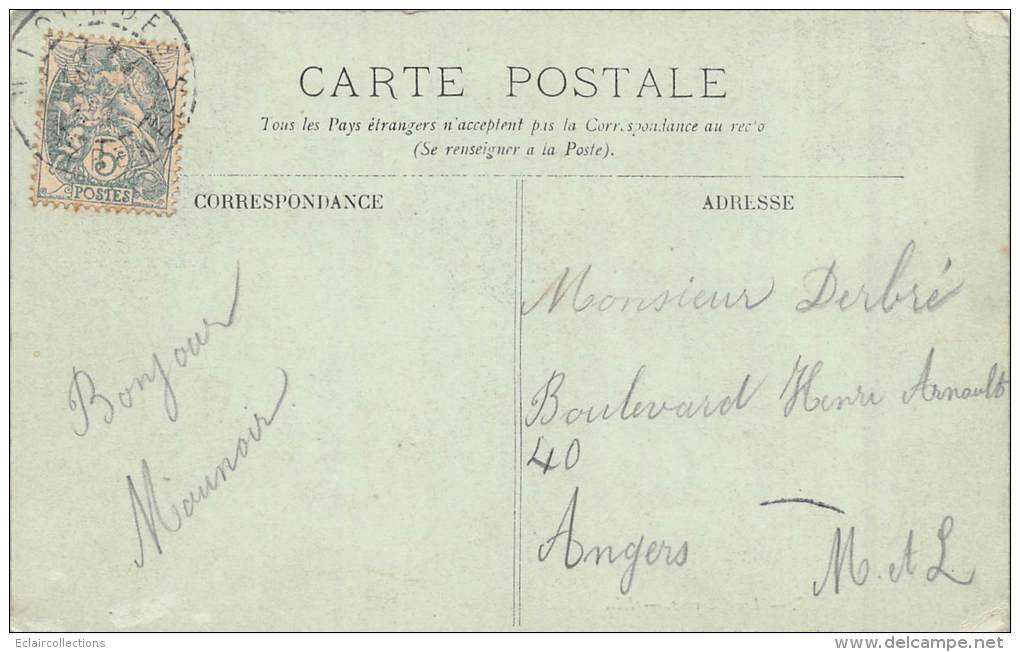 CARTE POSTALE
Tous les Pays étrangers n'acceptent pas la Correspondance au recto
(Se renseigner a la Poste).
5c
POSTES
CORRESPONDANCE
ADRESSE
Bonjour
Maunoir
Monsieur Derbré
Boulevard Henri Arnault
40
Angers
M. et L.
Eclaircollections
www.delcampe.net